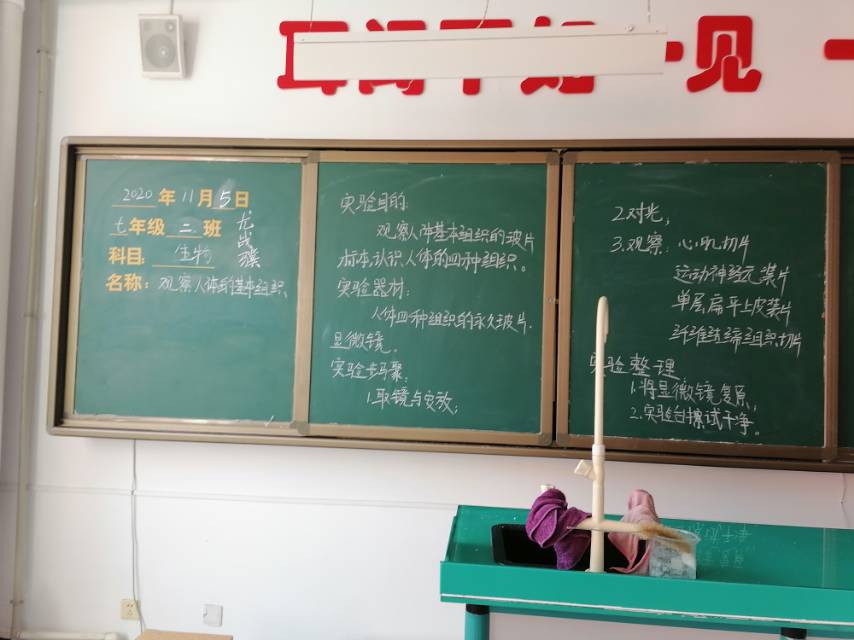 耳闻不如一见 一
2020年11月5日
七年级二班
科目:生物
名称:观察人体的基本组织
龙战骥
实验目的:
观察人体基本组织的玻片
标本,认识人体的四种组织。
实验器材:
人体四种组织的永久玻片.
显微镜。
实验步骤:
1.取镜与安放;
2.对光,
3.观察:心肌切片
运动神经元装片
单层扁平上皮装片
纤维结缔组织切片
实验整理
1.将显微镜复原,
2.实验台擦试干净。